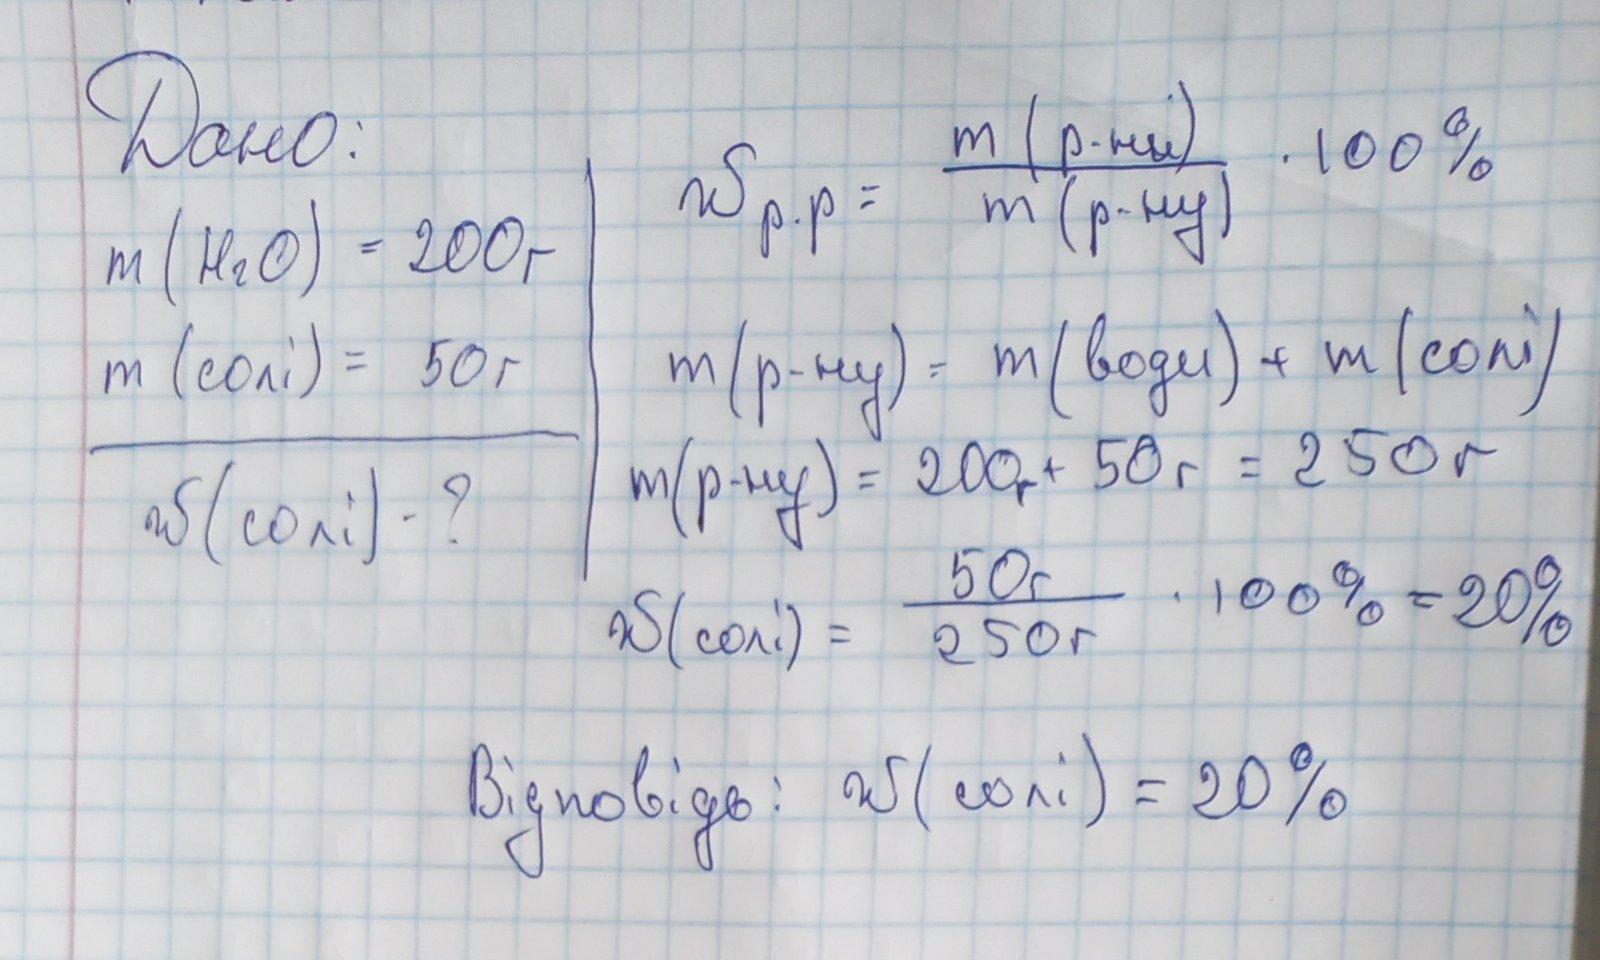 Дано:
m(H₂O) = 200г
m(солі) = 50г
w(солі) - ?
w р.р = m(р-ни) / m(р-ну) · 100%
m(р-ну) = m(води) + m(солі)
m(р-ну) = 200г + 50г = 250г
w(солі) = 50г / 250г · 100% = 20%
Відповідь: w(солі) = 20%